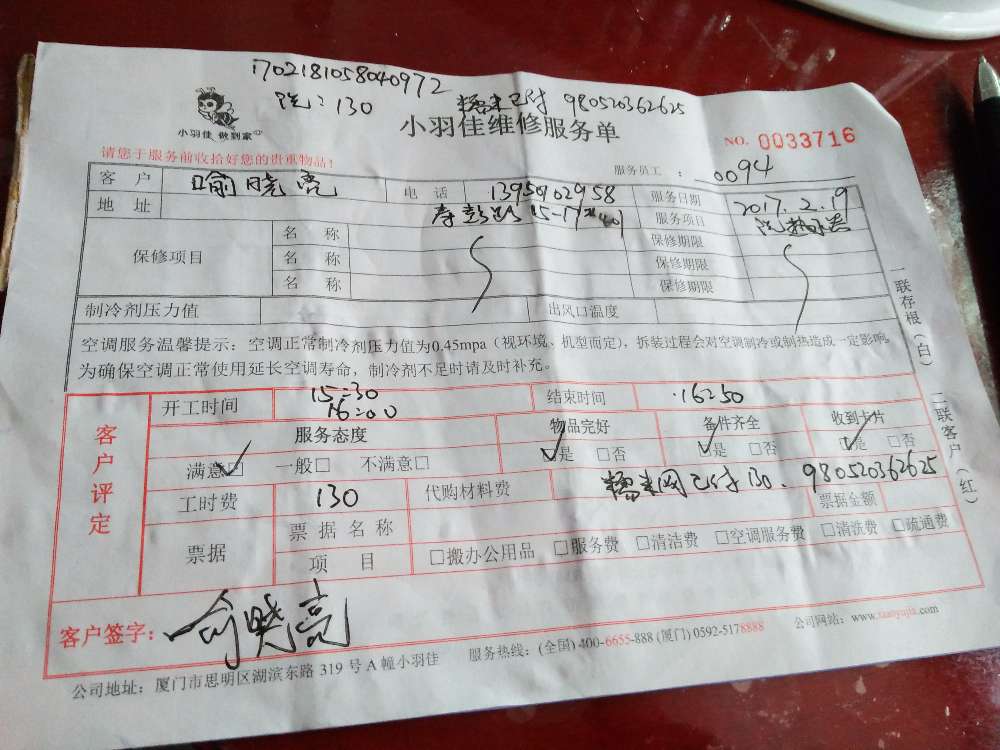 1702181058040972
洗：130 糯米已付 980520362625
小羽佳 做到家
小羽佳维修服务单
NO. 0033716
请您于服务前收拾好您的贵重物品！
服务员工 ： 0094
客户 喻晓亮 电话 13950102958 服务日期 2017.2.19
地址 15-17 服务项目 洗热水器
保修项目 名称 保修期限
名称 保修期限
名称 保修期限
制冷剂压力值 出风口温度
空调服务温馨提示：空调正常制冷剂压力值为0.45mpa（视环境、机型而定），拆装过程会对空调制冷或制热造成一定影响。
为确保空调正常使用延长空调寿命，制冷剂不足时请及时补充。
一联存根（白）
二联客户（红）
客户评定
开工时间 15:30 结束时间 16:50
16:00
服务态度 物品完好 备件齐全 收到卡片
满意□ 一般□ 不满意□ 是 □否 是 □否 是 □否
工时费 130 代购材料费 糯米网已付130、980520362625
票据 票据名称 票据金额
项目 □搬办公用品 □服务费 □清洁费 □空调服务费 □清洗费 □疏通费
客户签字： 俞晓亮
公司地址：厦门市思明区湖滨东路 319 号 A 幢小羽佳 服务热线：(全国) 400-6655-888 (厦门) 0592-5178888 公司网站：www.xiaoyujia.com